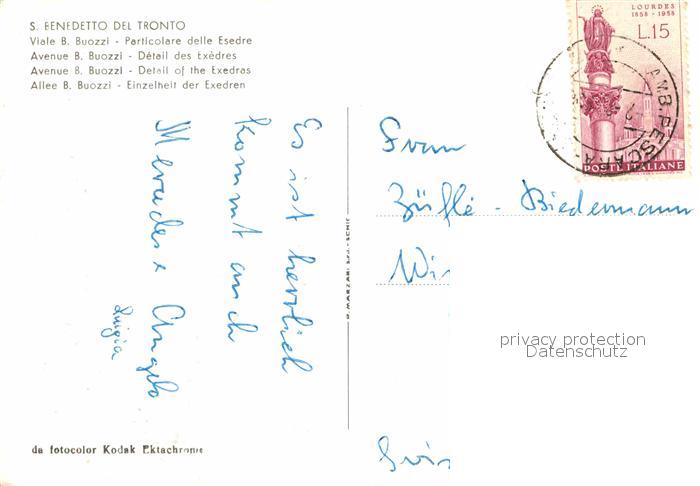 S. BENEDETTO DEL TRONTO
Viale B. Buozzi - Particolare delle Esedre
Avenue B. Buozzi - Détail des Exèdres
Avenue B. Buozzi - Detail of the Exedras
Allee B. Buozzi - Einzelheit der Exedren
LOURDES
1858 - 1958
L.15
POSTE ITALIANE
AMB. PESCARA
Es ist herrlich
kommt auch
Mercedes + Angelo
Luigia
Frau
Züflé - Biedermann
privacy protection
Datenschutz
da fotocolor Kodak Ektachrome